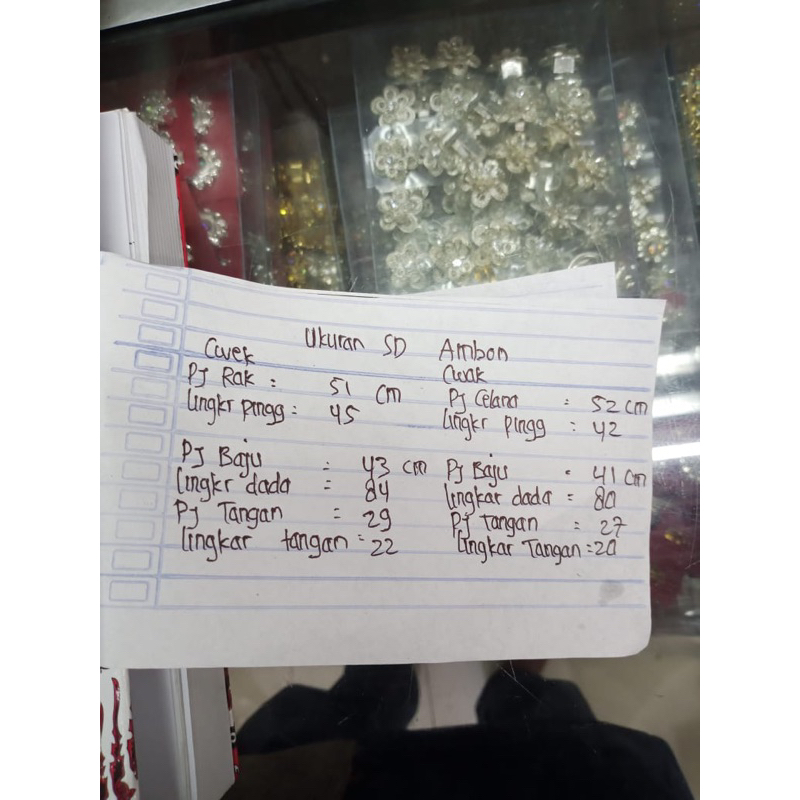 Ukuran SD Ambon
Cwek
Pj Rak : 51 cm
lingkr pingg : 45
Pj Baju : 43 cm
lingkr dada = 84
Pj Tangan = 29
lingkar tangan = 22
Cwok
Pj Celana : 52 cm
lingkr pingg : 42
Pj Baju : 41 cm
lingkar dada = 80
Pj tangan = 27
lingkar Tangan = 20